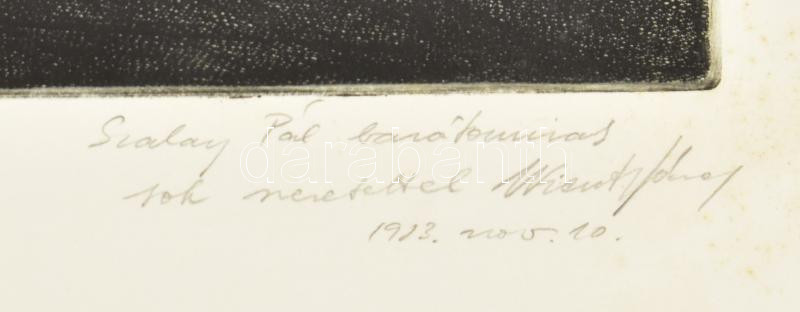 Szalay Pál barátomnak
sok szeretettel
1983. nov. 10.
darabanth